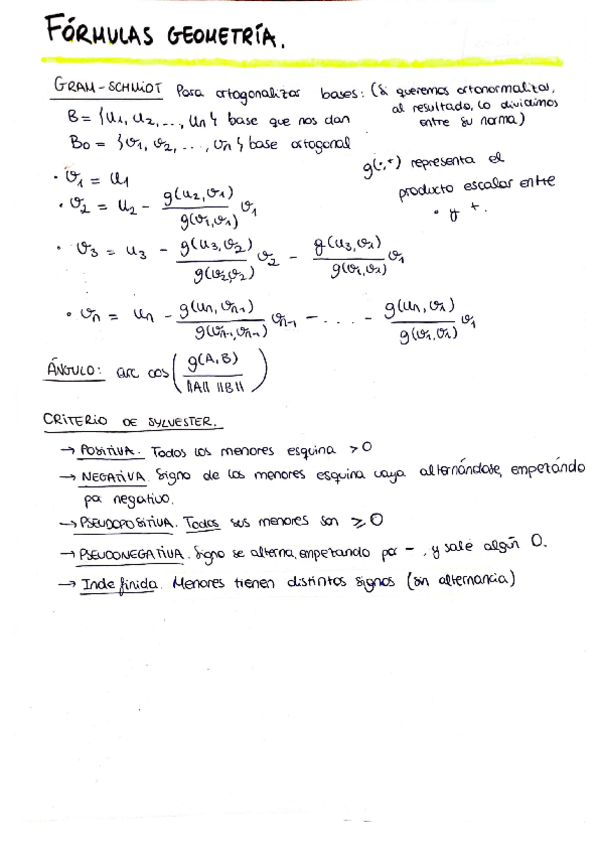 FÓRMULAS GEOMETRÍA.
GRAM-SCHMIDT Para ortogonalizar bases: (Si queremos ortonormalizar,
al resultado, lo dividimos
entre su norma)
B = {u1, u2, ..., un} base que nos dan
B0 = {v1, v2, ..., vn} base ortogonal
g(·,+) representa el
producto escalar entre
· y +.
· v1 = u1
· v2 = u2 - g(u2,v1)/g(v1,v1) v1
· v3 = u3 - g(u3,v2)/g(v2,v2) v2 - g(u3,v1)/g(v1,v1) v1
· vn = un - g(un,vn-1)/g(vn-1,vn-1) vn-1 - ... - g(un,v1)/g(v1,v1) v1
ÁNGULO: arc cos (g(A,B)/||A|| ||B||)
CRITERIO DE SYLVESTER.
→ POSITIVA. Todos los menores esquina > 0
→ NEGATIVA. Signo de los menores esquina vaya alternándose, empezando
por negativo.
→ PSEUDOPOSITIVA. Todos sus menores son ≥ 0
→ PSEUDONEGATIVA. Signo se alterna, empezando por -, y sale algún 0.
→ Indefinida. Menores tienen distintos signos (sin alternancia)